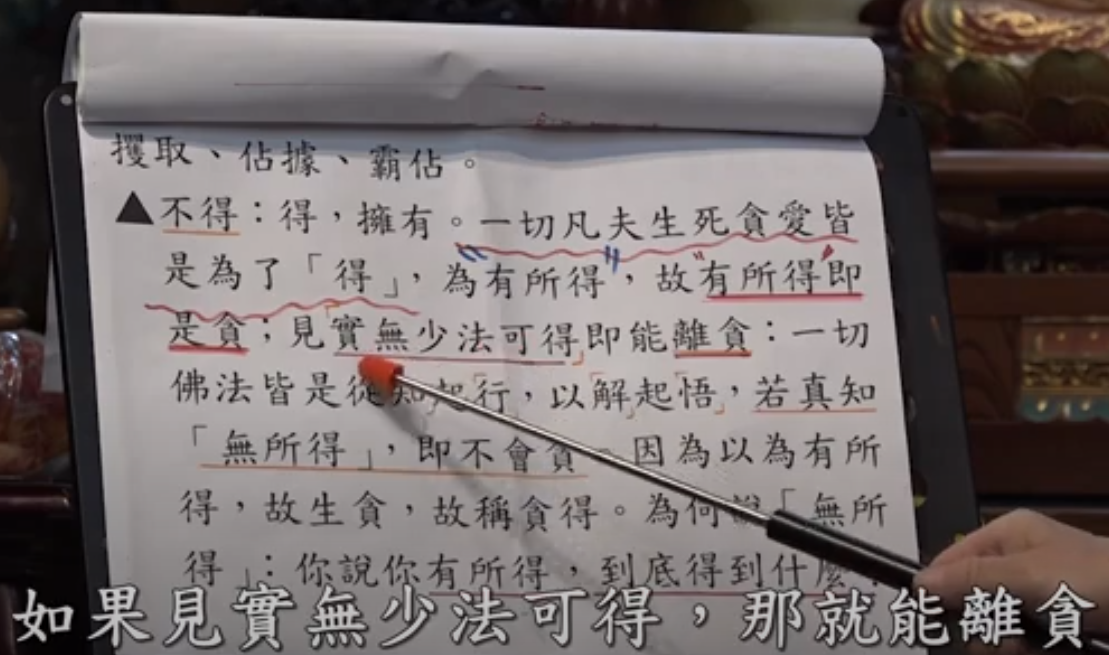 攫取、佔據、霸佔。
▲不得：得，擁有。一切凡夫生死貪愛皆
是為了「得」，為有所得，故有所得即
是貪；見實無少法可得即能離貪：一切
佛法皆是從知起行，以解起悟，若真知
「無所得」，即不會貪。因為以為有所
得，故生貪，故稱貪得。為何說「無所
得」：你說你有所得，到底得到什麼
如果見實無少法可得，那就能離貪